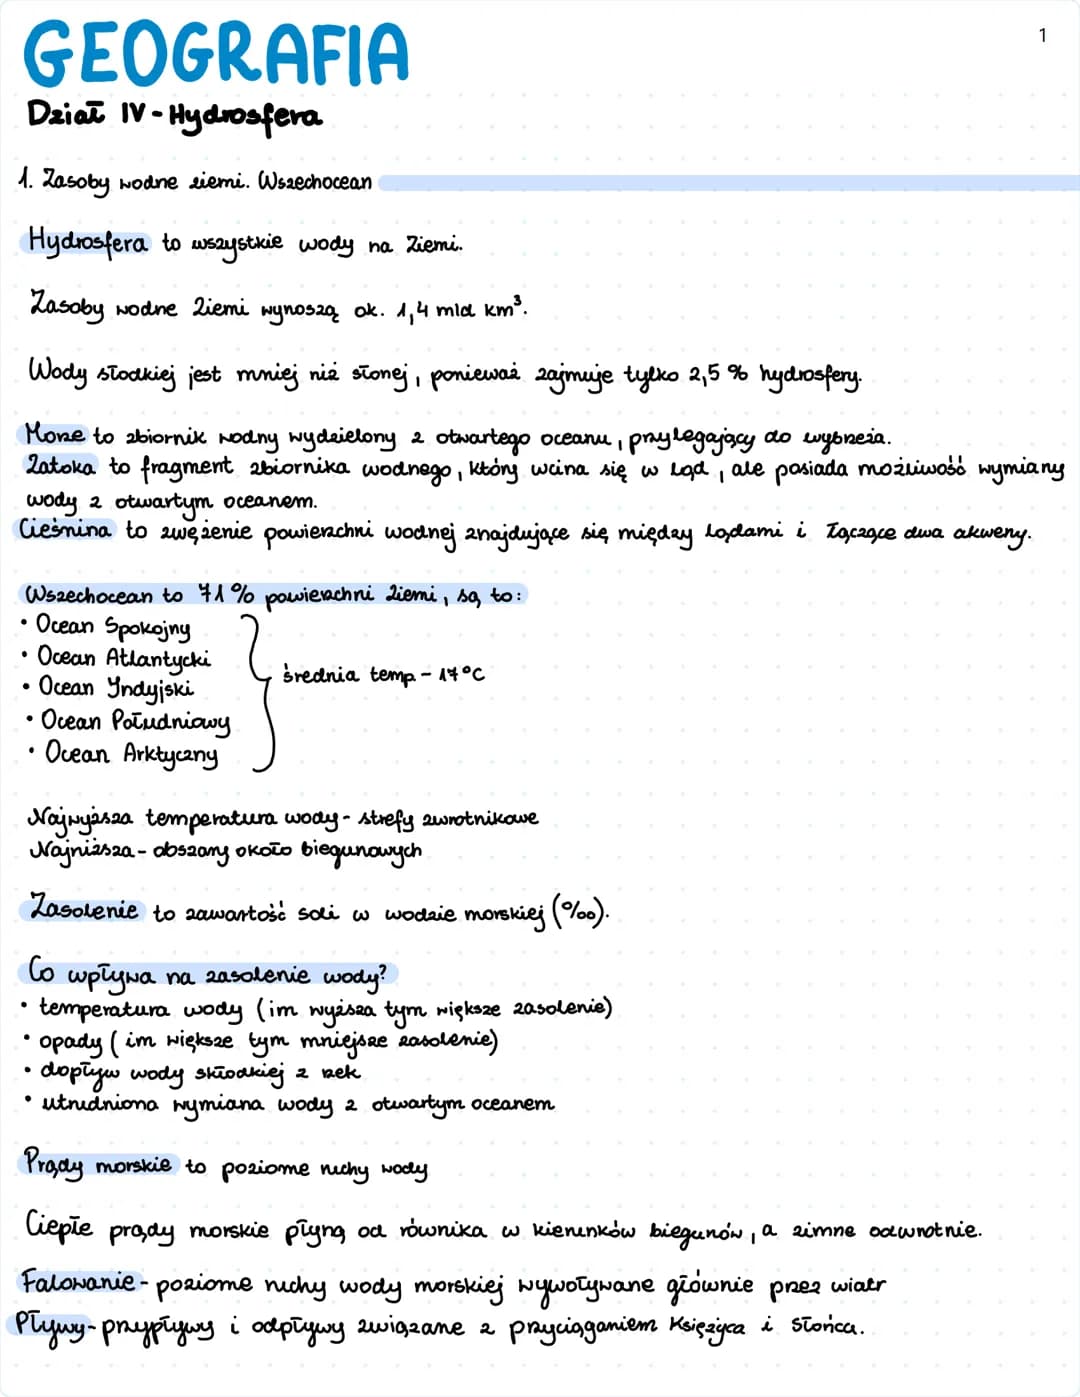 GEOGRAFIA
1
Dział IV - Hydrosfera
1. Zasoby wodne ziemi. Wszechocean
Hydrosfera to wszystkie wody na Ziemi.
Zasoby wodne Ziemi wynoszą ok. 1,4 mld km³.
Wody słodkiej jest mniej niż słonej, ponieważ zajmuje tylko 2,5 % hydrosfery.
Morze to zbiornik wodny wydzielony z otwartego oceanu, przylegający do wybrzeża.
Zatoka to fragment zbiornika wodnego, który wcina się w ląd, ale posiada możliwość wymiany
wody z otwartym oceanem.
Cieśnina to zwężenie powierzchni wodnej znajdujące się między lądami i łączące dwa akweny.
Wszechocean to 71% powierzchni Ziemi, są to:
• Ocean Spokojny
• Ocean Atlantycki
• Ocean Indyjski
• Ocean Południowy
• Ocean Arktyczny
średnia temp. - 17°C
Najwyższa temperatura wody - strefy zwrotnikowe
Najniższa - obszary około biegunowych
Zasolenie to zawartość soli w wodzie morskiej (‰).
Co wpływa na zasolenie wody?
• temperatura wody (im wyższa tym większe zasolenie)
• opady (im większe tym mniejsze zasolenie)
• dopływ wody skłodkiej z rzek
• utrudniona wymiana wody z otwartym oceanem
Prądy morskie to poziome ruchy wody
Ciepłe prądy morskie płyną od równika w kierunków biegunów, a zimne odwrotnie.
Falowanie - poziome ruchy wody morskiej wywoływane głównie przez wiatr
Pływy - przypływy i odpływy związane z przyciąganiem Księżyca i Słońca.